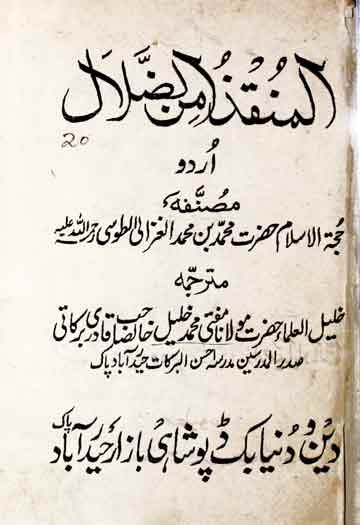 المنقذ من الضلال
20
اُردو
مصنّفہ
حجۃ الاسلام حضرت محمد بن محمد الغزالی الطوسی رحمۃ اللہ علیہ
مترجمہ
خلیل العلماء حضرت مولانا مفتی محمد خلیل خاں صاحب قادری برکاتی
صدر المدرسین مدرسہ احسن البرکات حیدرآباد پاک
دین و دنیا بک ڈپو شاہی بازار حیدرآباد پاک